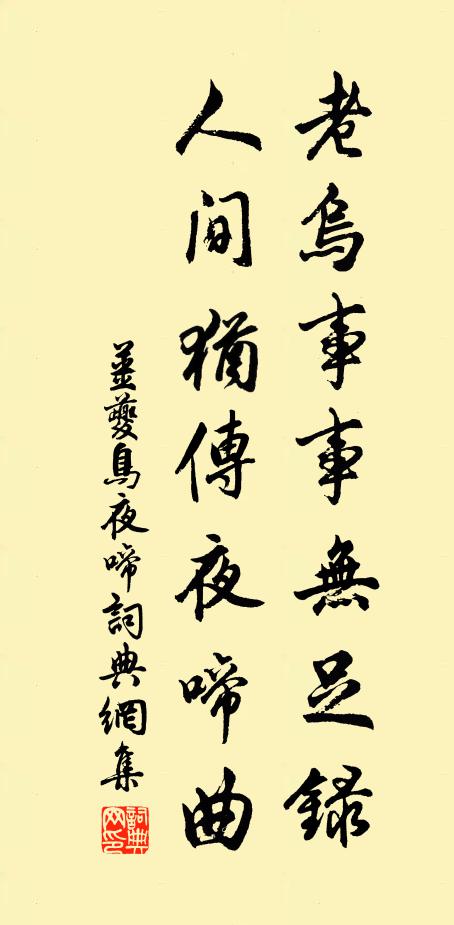 老烏事事無足録
人间猶傳夜啼曲
姜夔烏夜啼詞典網集
詞典
网印